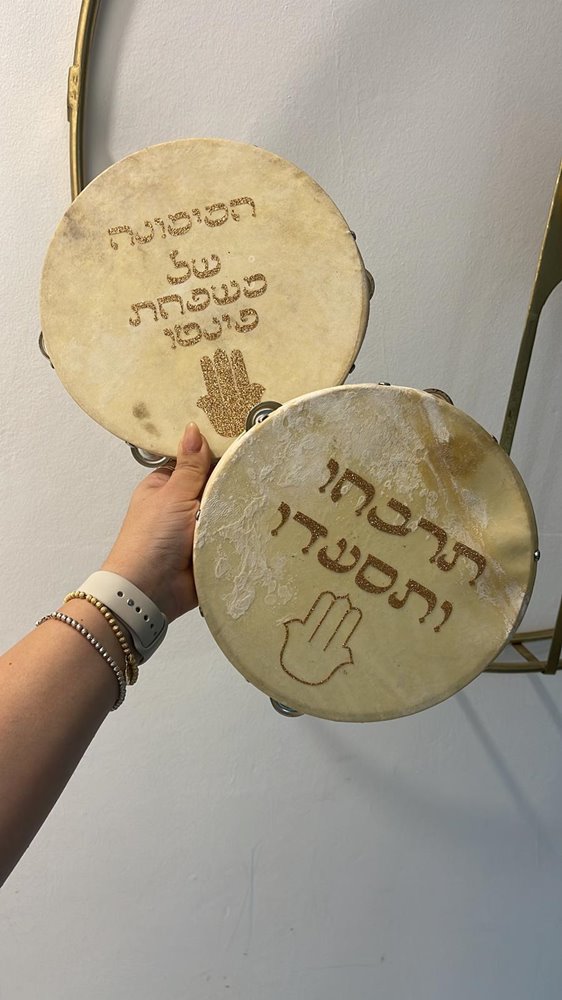 המימונה
של
משפחת
פינטו
תרבחו
ותסעדו